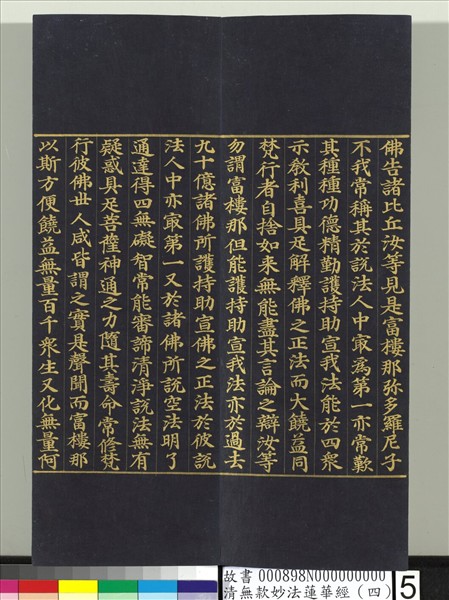 佛告諸比丘汝等見是富樓那弥多羅尼子
不我常稱其於說法人中㝡爲第一亦常歎
其種種功德精勤護持助宣我法能於四衆
示教利喜具足解釋佛之正法而大饒益同
梵行者自捨如来無能盡其言論之辯汝等
勿謂富樓那但能護持助宣我法亦於過去
九十億諸佛所護持助宣佛之正法於彼說
法人中亦㝡第一又於諸佛所說空法明了
通達得四無礙智常能審諦清淨說法無有
疑惑具足菩薩神通之力隨其壽命常修梵
行彼佛丗人咸皆謂之實是聲聞而富樓那
以斯方便饒益無量百千衆生又化無量阿
故書 000898N000000000
清無款妙法蓮華經（四）
5